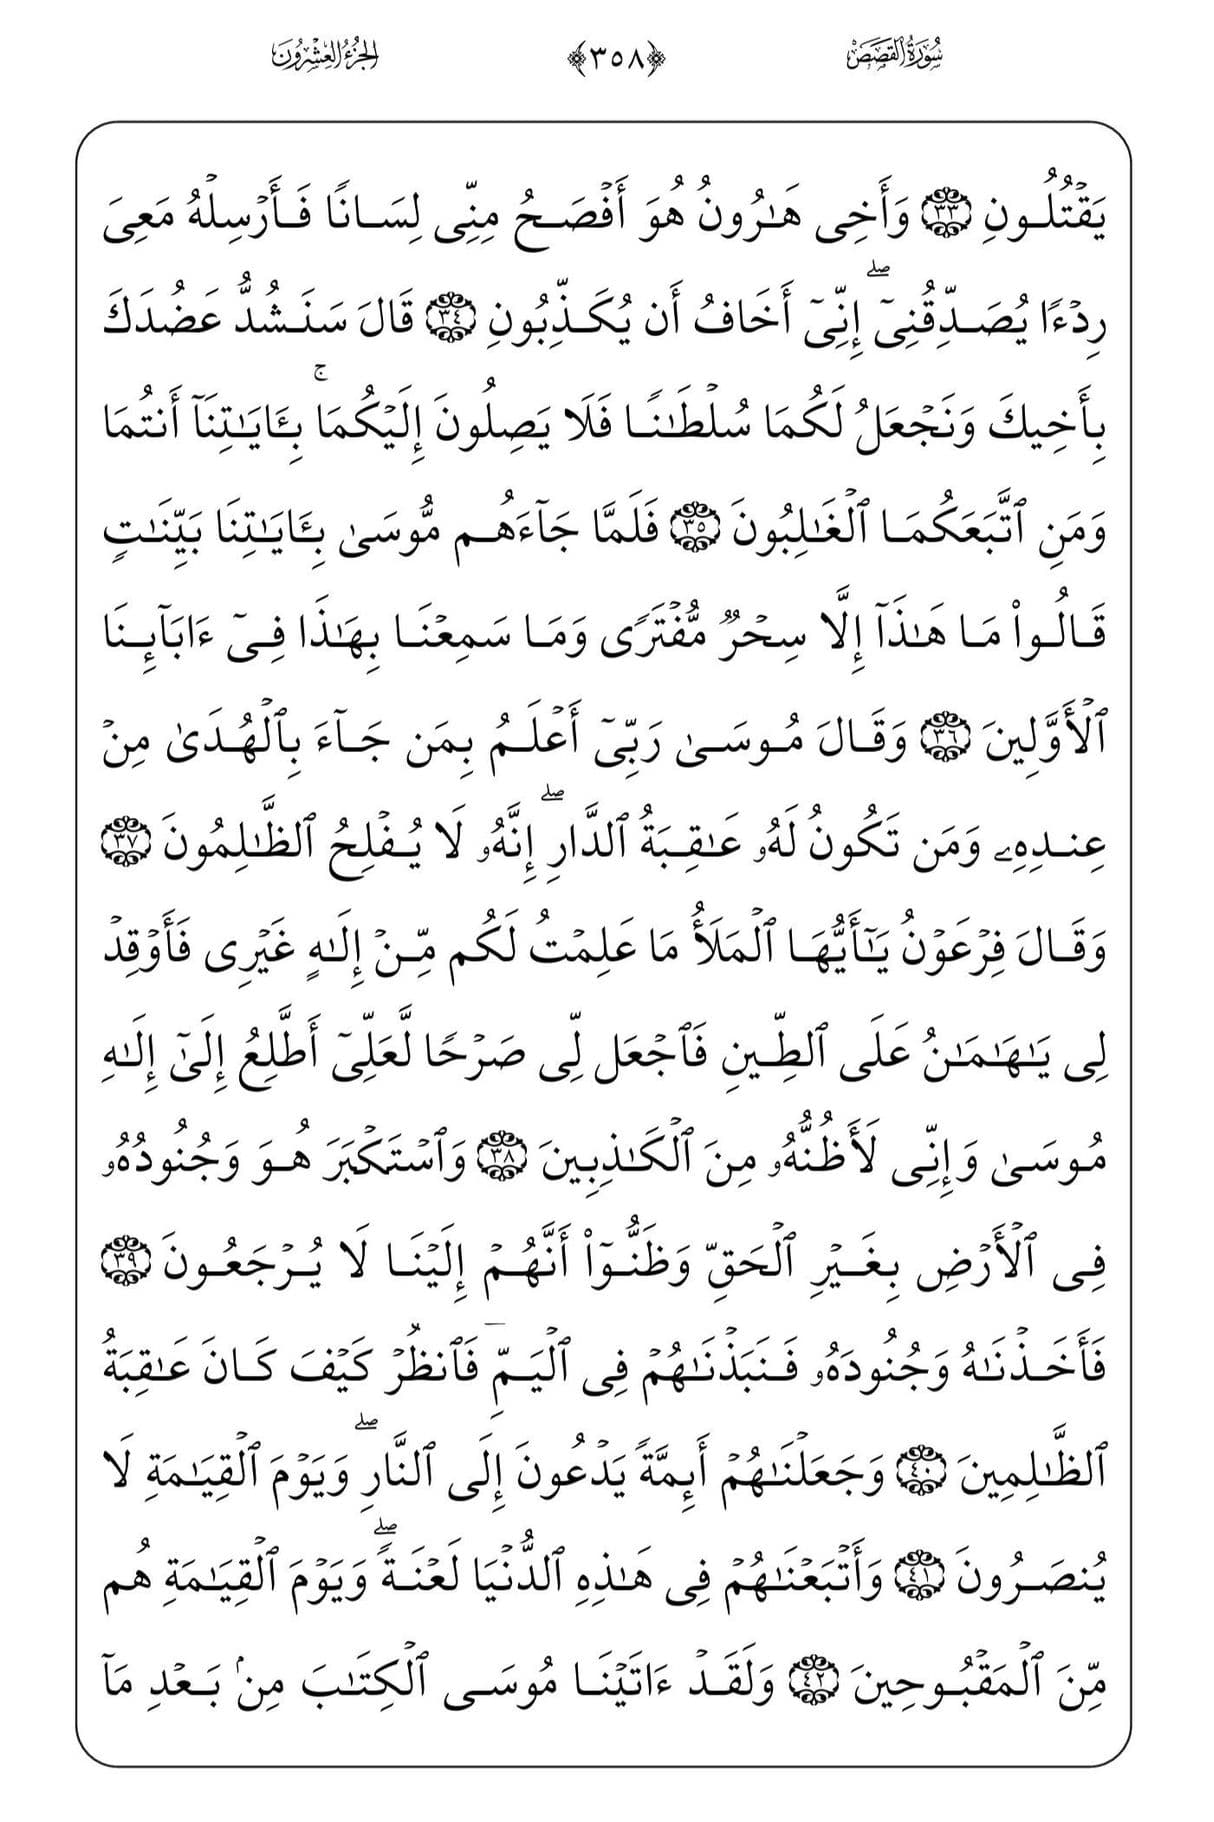 سُورَةُ القَصَصِ ﴿٣٥٨﴾ الجُزْءُ العِشْرُونَ
يَقْتُلُونِ ٣٣ وَأَخِى هَـٰرُونُ هُوَ أَفْصَحُ مِنِّى لِسَانًا فَأَرْسِلْهُ مَعِىَ
رِدْءًا يُصَدِّقُنِىٓ ۖ إِنِّىٓ أَخَافُ أَن يُكَذِّبُونِ ٣٤ قَالَ سَنَشُدُّ عَضُدَكَ
بِأَخِيكَ وَنَجْعَلُ لَكُمَا سُلْطَـٰنًا فَلَا يَصِلُونَ إِلَيْكُمَا ۚ بِـَٔايَـٰتِنَآ أَنتُمَا
وَمَنِ ٱتَّبَعَكُمَا ٱلْغَـٰلِبُونَ ٣٥ فَلَمَّا جَآءَهُم مُّوسَىٰ بِـَٔايَـٰتِنَا بَيِّنَـٰتٍ
قَالُوا۟ مَا هَـٰذَآ إِلَّا سِحْرٌ مُّفْتَرًى وَمَا سَمِعْنَا بِهَـٰذَا فِىٓ ءَابَآئِنَا
ٱلْأَوَّلِينَ ٣٦ وَقَالَ مُوسَىٰ رَبِّىٓ أَعْلَمُ بِمَن جَآءَ بِٱلْهُدَىٰ مِنْ
عِندِهِۦ وَمَن تَكُونُ لَهُۥ عَـٰقِبَةُ ٱلدَّارِ ۖ إِنَّهُۥ لَا يُفْلِحُ ٱلظَّـٰلِمُونَ ٣٧
وَقَالَ فِرْعَوْنُ يَـٰٓأَيُّهَا ٱلْمَلَأُ مَا عَلِمْتُ لَكُم مِّنْ إِلَـٰهٍ غَيْرِى فَأَوْقِدْ
لِى يَـٰهَـٰمَـٰنُ عَلَى ٱلطِّينِ فَٱجْعَل لِّى صَرْحًا لَّعَلِّىٓ أَطَّلِعُ إِلَىٰٓ إِلَـٰهِ
مُوسَىٰ وَإِنِّى لَأَظُنُّهُۥ مِنَ ٱلْكَـٰذِبِينَ ٣٨ وَٱسْتَكْبَرَ هُوَ وَجُنُودُهُۥ
فِى ٱلْأَرْضِ بِغَيْرِ ٱلْحَقِّ وَظَنُّوٓا۟ أَنَّهُمْ إِلَيْنَا لَا يُرْجَعُونَ ٣٩
فَأَخَذْنَـٰهُ وَجُنُودَهُۥ فَنَبَذْنَـٰهُمْ فِى ٱلْيَمِّ فَٱنظُرْ كَيْفَ كَانَ عَـٰقِبَةُ
ٱلظَّـٰلِمِينَ ٤٠ وَجَعَلْنَـٰهُمْ أَئِمَّةً يَدْعُونَ إِلَى ٱلنَّارِ ۖ وَيَوْمَ ٱلْقِيَـٰمَةِ لَا
يُنصَرُونَ ٤١ وَأَتْبَعْنَـٰهُمْ فِى هَـٰذِهِ ٱلدُّنْيَا لَعْنَةً ۖ وَيَوْمَ ٱلْقِيَـٰمَةِ هُم
مِّنَ ٱلْمَقْبُوحِينَ ٤٢ وَلَقَدْ ءَاتَيْنَا مُوسَى ٱلْكِتَـٰبَ مِنۢ بَعْدِ مَآ